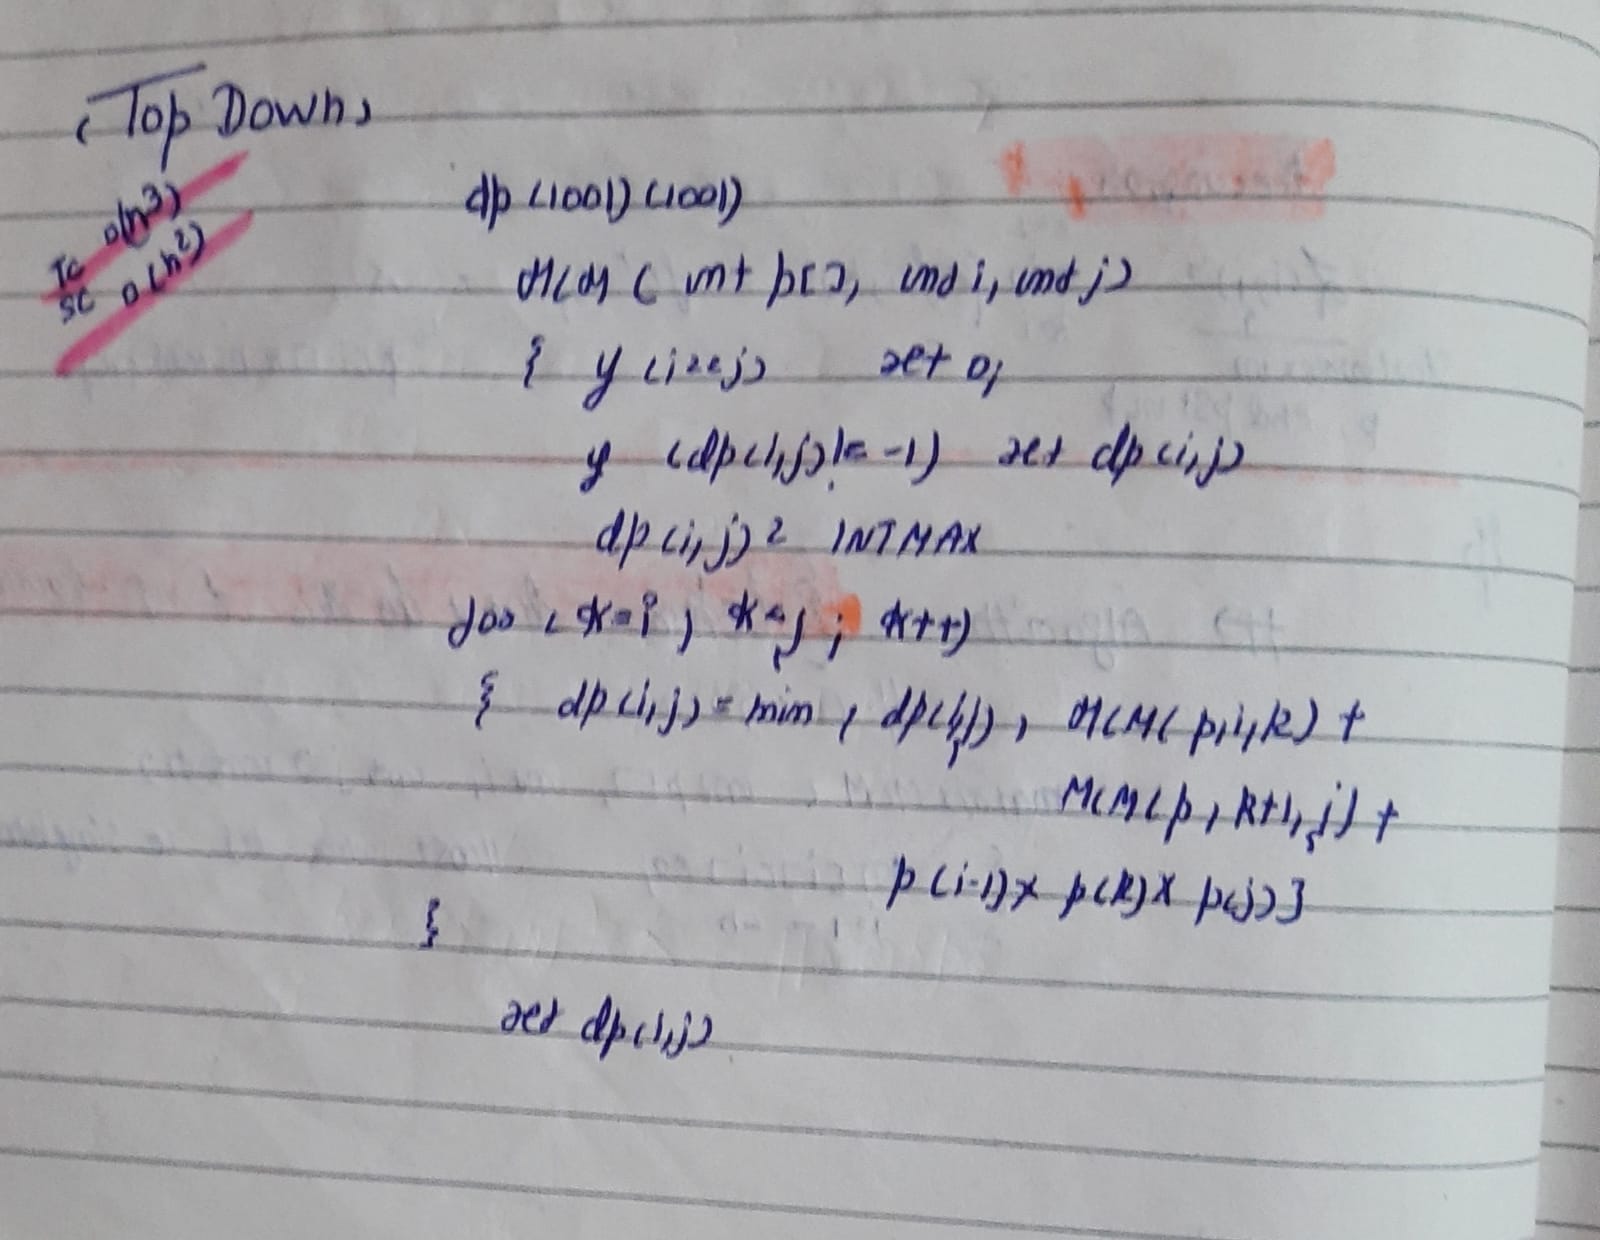 (Top Down)
TC O(n³)
SC O(n²)
dp[1001][1001]
MCM ( int p[], int i, int j)
{ if (i==j) ret 0;
if (dp[i,j]!= -1) ret dp[i,j]
dp[i,j] = INTMAX
for (k=i ; k<j ; k++)
{ dp[i,j] = min ( dp[i,j], MCM( p,i,k) +
MCM(p, k+1, j) +
p[i-1]x p[k]x p[j]}
}
ret dp[i,j]